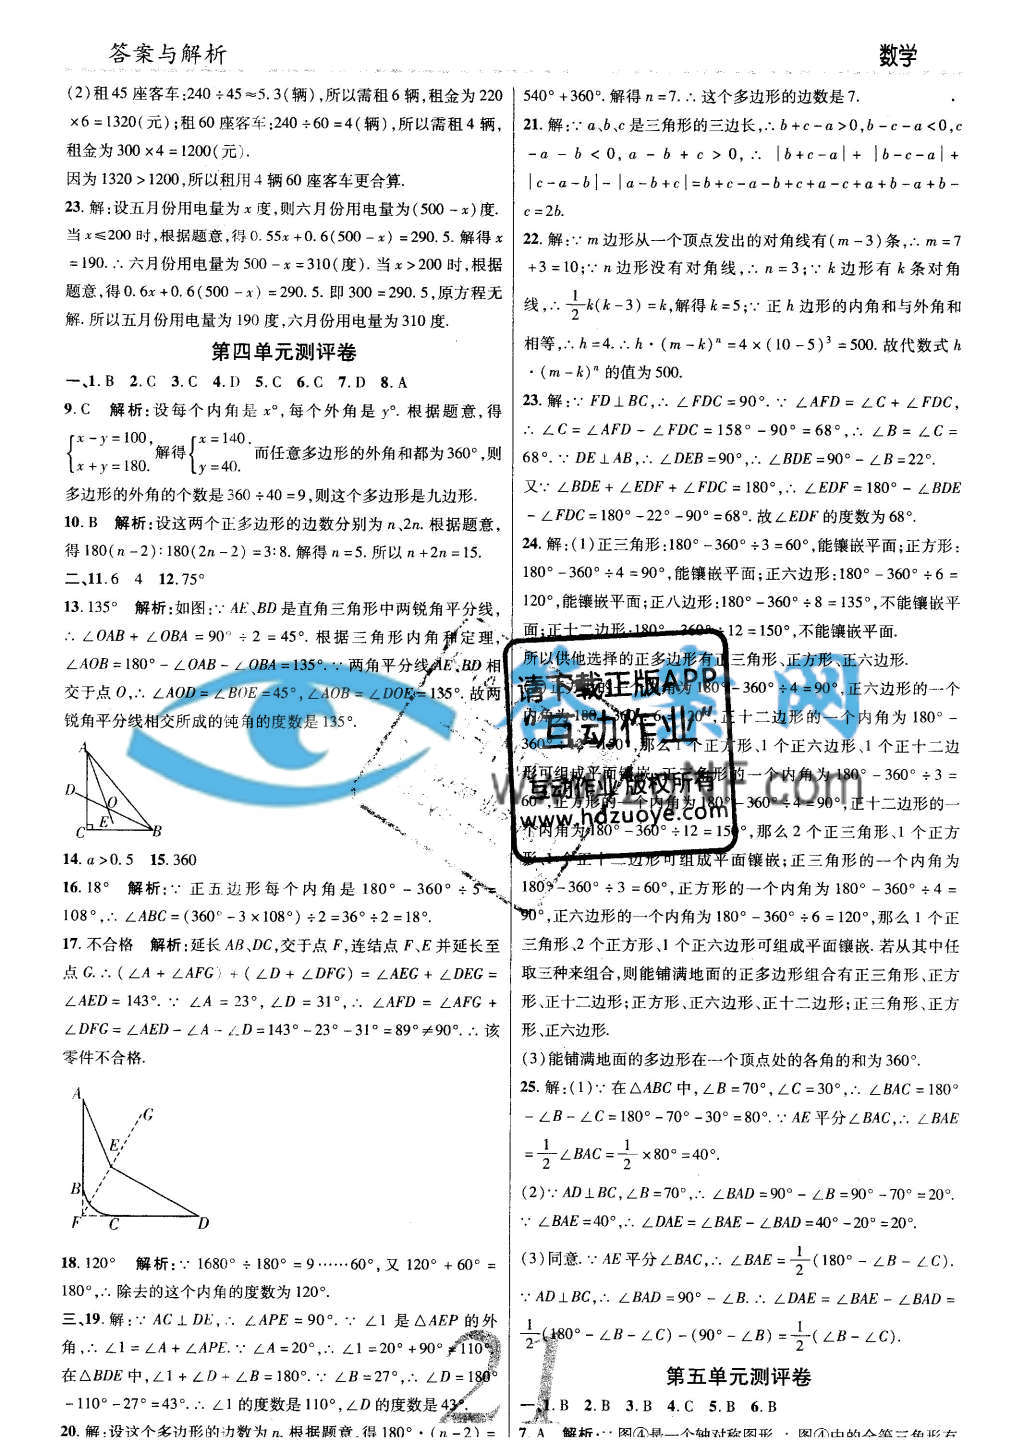 答案与解析
数学
(2)租45座客车:240÷45≈5.3(辆),所以需租6辆,租金为220
×6=1320(元);租60座客车:240÷60=4(辆),所以需租4辆,
租金为300×4=1200(元).
因为1320>1200,所以租用4辆60座客车更合算.
23.解:设五月份用电量为x度,则六月份用电量为(500-x)度.
当x≤200时,根据题意,得0.55x+0.6(500-x)=290.5.解得x
=190.∴六月份用电量为500-x=310(度).当x>200时,根据
题意,得0.6x+0.6(500-x)=290.5.即300=290.5,原方程无
解.所以五月份用电量为190度,六月份用电量为310度.
第四单元测评卷
一、1.B 2.C 3.C 4.D 5.C 6.C 7.D 8.A
9.C 解析:设每个内角是x°,每个外角是y°.根据题意,得
{x-y=100, x+y=180. 解得{x=140. y=40. 而任意多边形的外角和都为360°,则
多边形的外角的个数是360÷40=9,则这个多边形是九边形.
10.B 解析:设这两个正多边形的边数分别为n、2n.根据题意,
得180(n-2):180(2n-2)=3:8.解得n=5.所以n+2n=15.
二、11.6 4 12.75°
13.135° 解析:如图:∵AE、BD是直角三角形中两锐角平分线,
∴∠OAB+∠OBA=90°÷2=45°.根据三角形内角和定理,
∠AOB=180°-∠OAB-∠OBA=135°.∵两角平分线AE、BD相
交于点O,∴∠AOD=∠BOE=45°,∠AOB=∠DOE=135°.故两
锐角平分线相交所成的钝角的度数是135°.
A
D
O
E
C
B
14.a>0.5 15.360
16.18° 解析:∵正五边形每个内角是180°-360°÷5=
108°,∴∠ABC=(360°-3×108°)÷2=36°÷2=18°.
17.不合格 解析:延长AB、DC,交于点F,连结点F、E并延长至
点G.∴(∠A+∠AFG)+(∠D+∠DFG)=∠AEG+∠DEG=
∠AED=143°.∵∠A=23°,∠D=31°,∴∠AFD=∠AFG+
∠DFG=∠AED-∠A-∠D=143°-23°-31°=89°≠90°.∴该
零件不合格.
A
G
E
B
F
C
D
18.120° 解析:∵1680°÷180°=9……60°,又120°+60°=
180°,∴除去的这个内角的度数为120°.
三、19.解:∵AC⊥DE,∴∠APE=90°.∵∠1是△AEP的外
角,∴∠1=∠A+∠APE.∵∠A=20°,∴∠1=20°+90°=110°.
在△BDE中,∠1+∠D+∠B=180°.∵∠B=27°,∴∠D=180°
-110°-27°=43°.∴∠1的度数是110°,∠D的度数是43°.
20.解:设这个多边形的边数为n.根据题意,得180°·(n-2)=
540°+360°.解得n=7.∴这个多边形的边数是7.
21.解:∵a、b、c是三角形的三边长,∴b+c-a>0,b-c-a<0,c
-a-b<0,a-b+c>0,∴|b+c-a|+|b-c-a|+
|c-a-b|-|a-b+c|=b+c-a-b+c+a-c+a+b-a+b-
c=2b.
22.解:∵m边形从一个顶点发出的对角线有(m-3)条,∴m=7
+3=10;∵n边形没有对角线,∴n=3;∵k边形有k条对角
线,∴1/2k(k-3)=k,解得k=5;∵正h边形的内角和与外角和
相等,∴h=4.∴h·(m-k)ⁿ=4×(10-5)³=500.故代数式h
·(m-k)ⁿ的值为500.
23.解:∵FD⊥BC,∴∠FDC=90°.∵∠AFD=∠C+∠FDC,
∴∠C=∠AFD-∠FDC=158°-90°=68°,∴∠B=∠C=
68°.∵DE⊥AB,∴∠DEB=90°,∴∠BDE=90°-∠B=22°.
又∵∠BDE+∠EDF+∠FDC=180°,∴∠EDF=180°-∠BDE
-∠FDC=180°-22°-90°=68°.故∠EDF的度数为68°.
24.解:(1)正三角形:180°-360°÷3=60°,能镶嵌平面;正方形:
180°-360°÷4=90°,能镶嵌平面;正六边形:180°-360°÷6=
120°,能镶嵌平面;正八边形:180°-360°÷8=135°,不能镶嵌平
面;正十二边形:180°-360°÷12=150°,不能镶嵌平面.
所以供他选择的正多边形有正三角形、正方形、正六边形.
正方形的一个内角为180°-360°÷4=90°,正六边形的一个
内角为180°-360°÷6=120°,正十二边形的一个内角为180°-
360°÷12=150°,那么1个正方形、1个正六边形、1个正十二边
形可组成平面镶嵌;正三角形的一个内角为180°-360°÷3=
60°,正方形的一个内角为180°-360°÷4=90°,正十二边形的一
个内角为180°-360°÷12=150°,那么2个正三角形、1个正方
形、1个正十二边形可组成平面镶嵌;正三角形的一个内角为
180°-360°÷3=60°,正方形的一个内角为180°-360°÷4=
90°,正六边形的一个内角为180°-360°÷6=120°,那么1个正
三角形、2个正方形、1个正六边形可组成平面镶嵌.若从其中任
取三种来组合,则能铺满地面的正多边形组合有正三角形、正方
形、正十二边形;正方形、正六边形、正十二边形;正三角形、正方
形、正六边形.
(3)能铺满地面的多边形在一个顶点处的各角的和为360°.
25.解:(1)∵在△ABC中,∠B=70°,∠C=30°,∴∠BAC=180°
-∠B-∠C=180°-70°-30°=80°.∵AE平分∠BAC,∴∠BAE
=1/2∠BAC=1/2×80°=40°.
(2)∵AD⊥BC,∠B=70°,∴∠BAD=90°-∠B=90°-70°=20°.
∵∠BAE=40°,∴∠DAE=∠BAE-∠BAD=40°-20°=20°.
(3)同意.∵AE平分∠BAC,∴∠BAE=1/2(180°-∠B-∠C).
∵AD⊥BC,∴∠BAD=90°-∠B.∴∠DAE=∠BAE-∠BAD=
1/2(180°-∠B-∠C)-(90°-∠B)=1/2(∠B-∠C).
第五单元测评卷
一、1.B 2.B 3.B 4.C 5.B 6.B
7.A 解析:∵图④是一个轴对称图形,∴图④中的全等三角形有
请下载正版APP
"互动作业"
互动作业 版权所有
www.hdzuoye.com
答案网
21